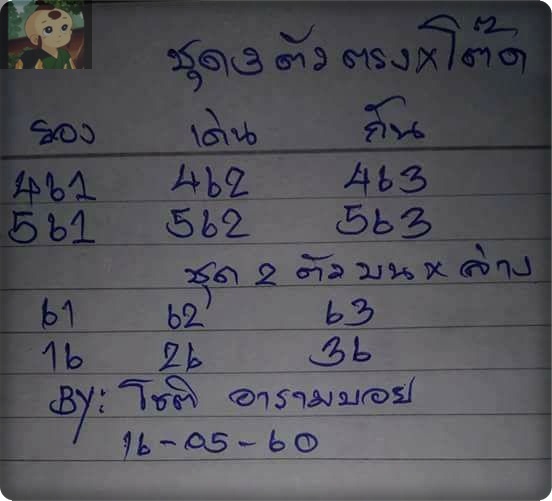 ชุด 3 ตัว ตรง x โต๊ด
รอง เด่น กัน
461 462 463
561 562 563
ชุด 2 ตัว บน x ล่าง
61 62 63
16 26 36
BY: โชติ อารามบอย
16-05-60